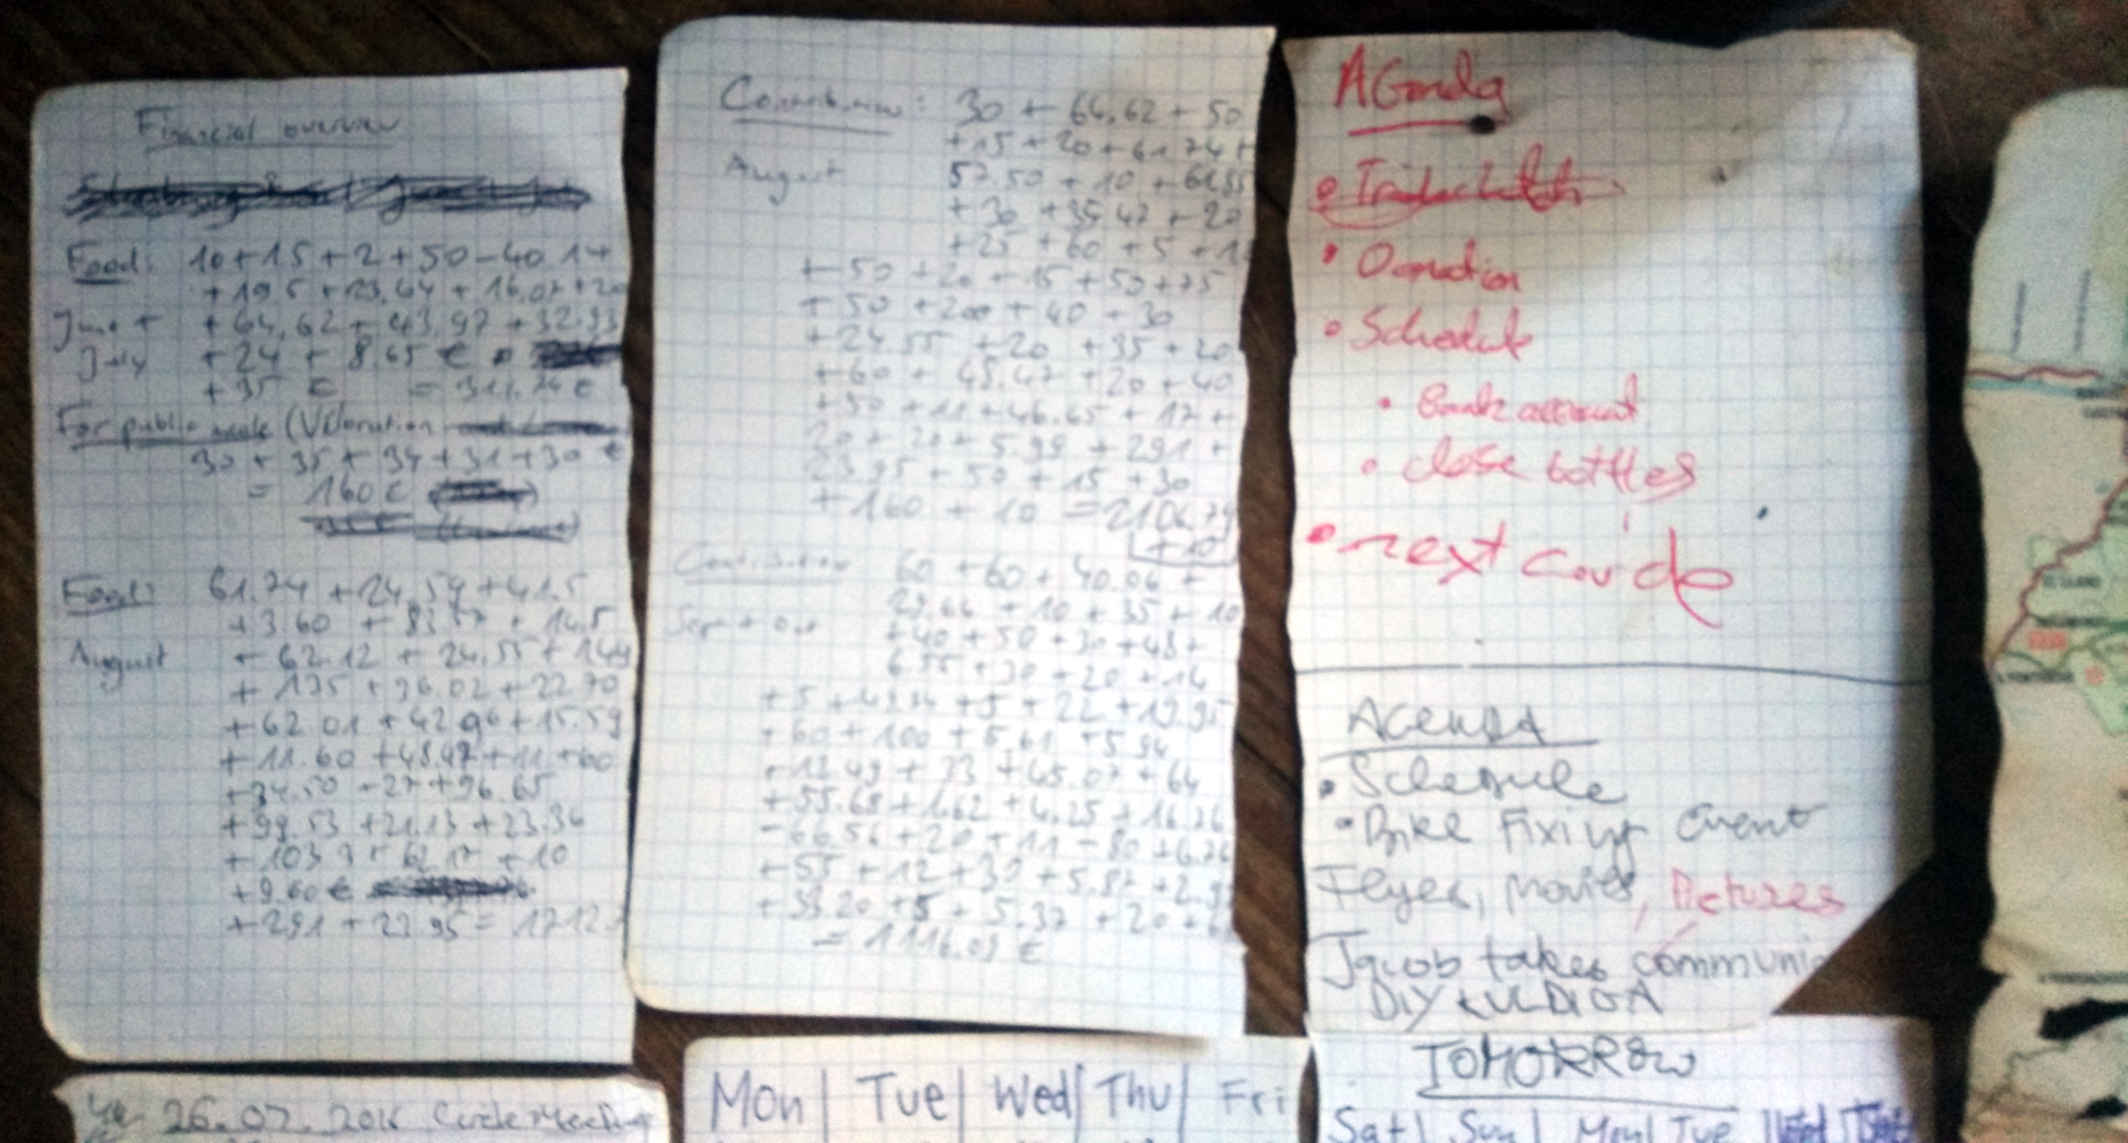 Financial overview
Food: 10+15+2+50-40.14
+19.5+23.64+16.07+20
June + +64,62+43,97+32.93
July +24+8.65€
+35€ =311.74€
For public (Vėloration
30+35+34+31+30€
= 160€
Food: 61.74+24.54+41.5
+3.60+83.57+14.5
August +62.12+24.55+144
+135+36.02+22.70
+62.01+42.96+15.59
+11.60+48.47+11+60
+34.50+27+96.65
+99.53+21.13+23.36
+103.95+62.17+10
+9.60€
+291+23.95=1712.
Contribution: 30+64,62+50
+15+20+61.74+
August 57.50+10+61.55
+30+35.47+20
+25+60+5+1
+50+20+15+50+75
+50+200+40+30
+24.55+20+35+20
+60+48.47+20+40
+50+11+46.65+17+
20+20+5.99+291+
23.95+50+15+30
+160+10=2106.79
+10
Contribution 60+60+40.06+
29.66+10+35+10
Sep + Oct +40+50+30+48+
6.55+30+20+14
+5+49.34+5+22+19.95
+60+100+5.61+5.94
+12.49+33+45.07+64
+55.68+1.62+4.25+16.36
-66.56+20+11-80+6.76
+55+12+30+5.87+2.9
+39.20+5+5.37+20+
=1116.09€
AGenda
• Donation
• Schedule
• Bank account
• close bottles
• next
AGENDA
• Schedule
• Bike Fixing event
Flyes, movies, Pictures
Jacob takes communi
DIY KULDIGA
26.07.2016 Circle Meeting
Mon Tue Wed Thu Fri
TOMORROW
Sat Sun Mon Tue Wed